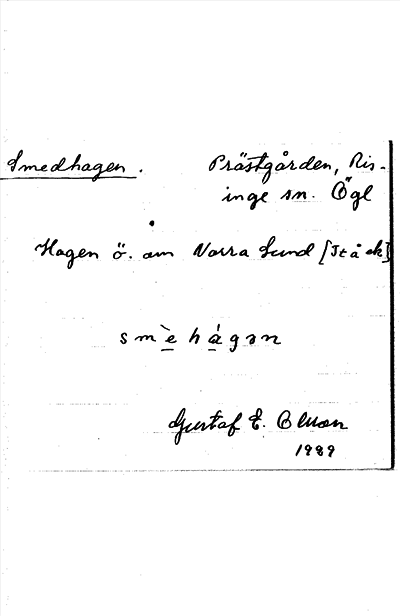 Smedhagen. Prästgården, Ris-
inge sn. Ögl
Hagen ö. om Norra Sund [It å ek]
smèhágən
Gustaf E. Olsson
1989